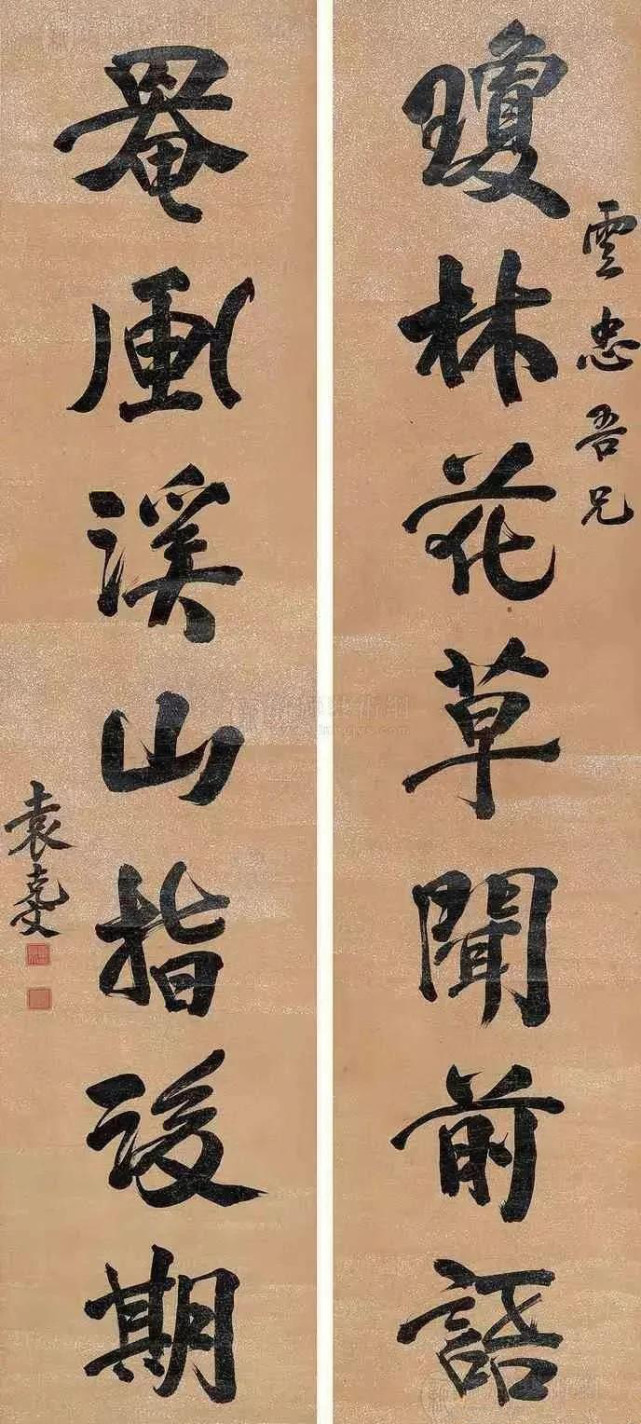 雲忠吾兄
瓊林花草聞前語
罨画溪山指後期
袁克文